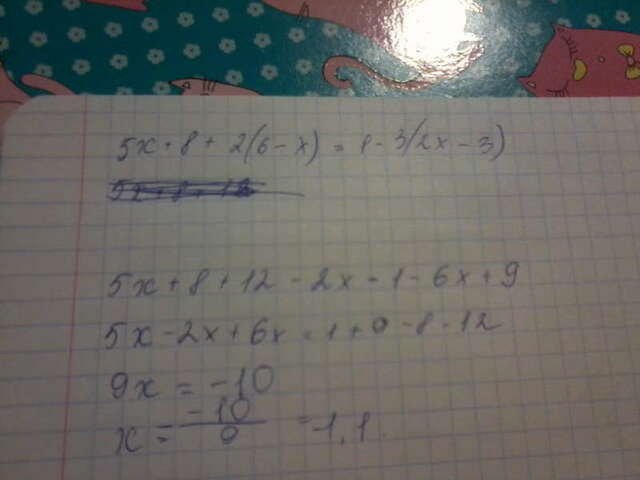 5x + 8 + 2(6 - x) = 1 - 3(2x - 3)
5x + 8 + 12 - 2x = 1 - 6x + 9
5x - 2x + 6x = 1 + 9 - 8 - 12
9x = -10
x = -10/9 = -1,1